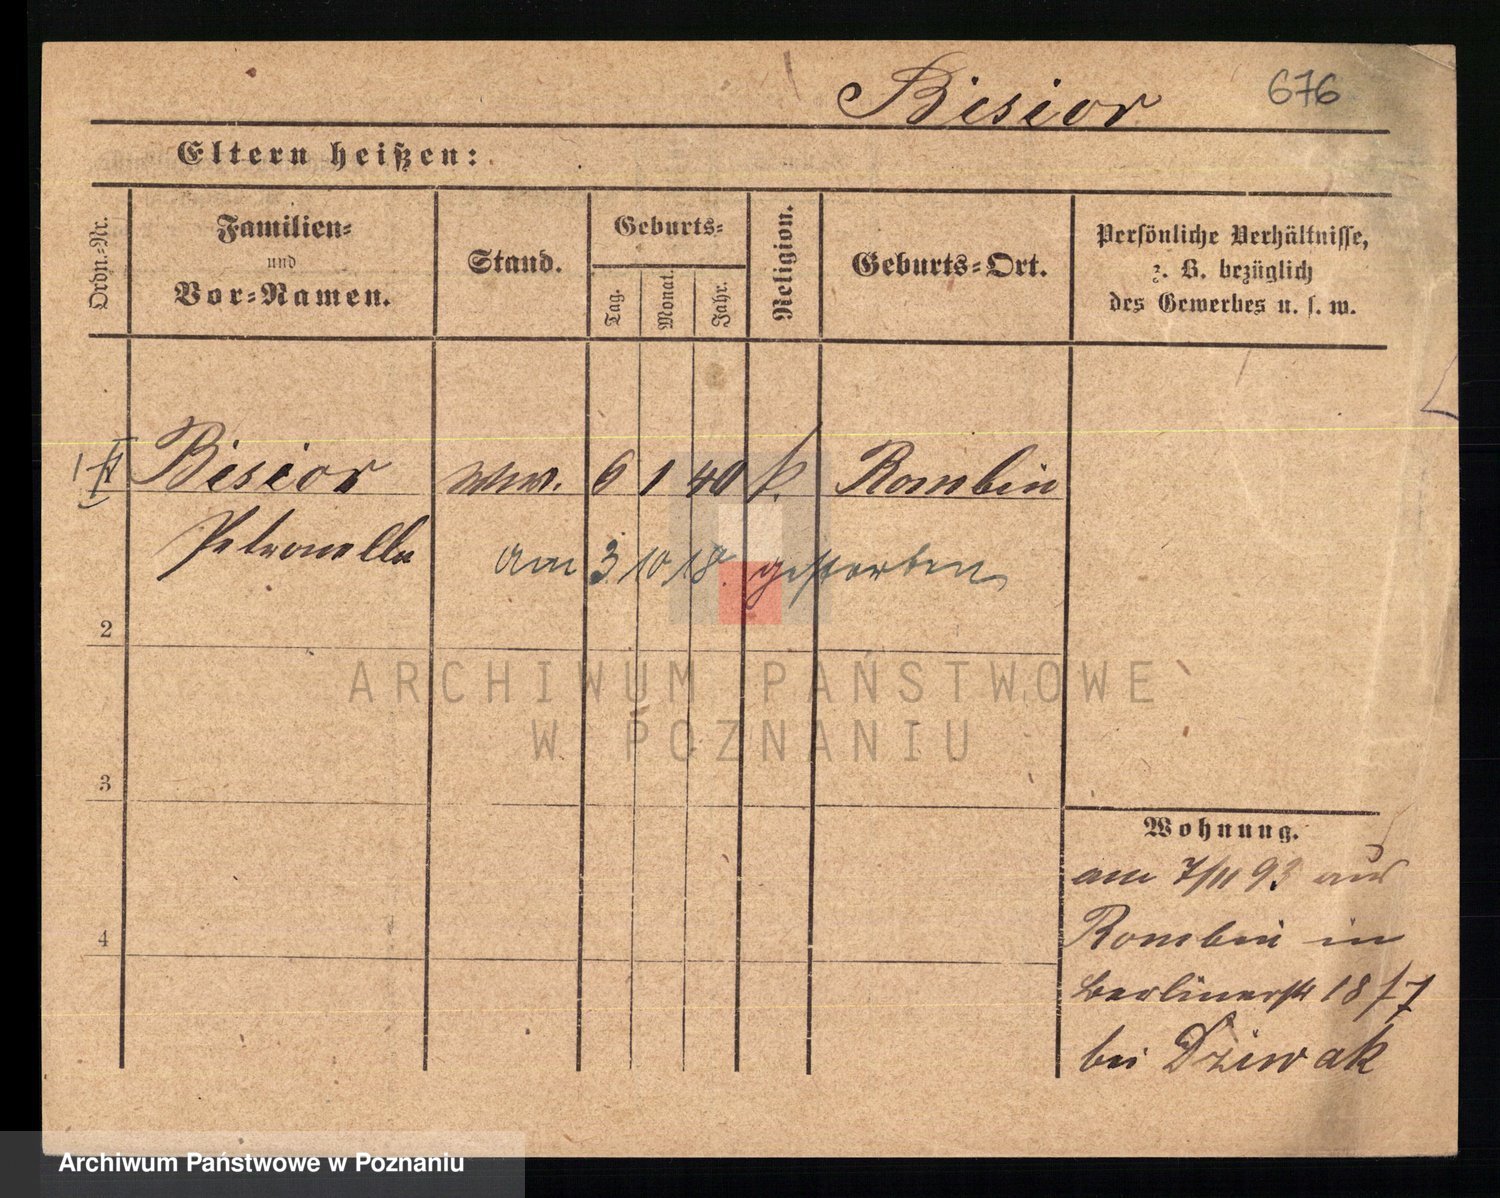 Bisior 676
Eltern heißen:
Ordn.-Nr.
Familien-
und
Vor-Namen.
Stand.
Geburts-
Tag.
Monat.
Jahr.
Religion.
Geburts-Ort.
Persönliche Verhältnisse,
z. B. bezüglich
des Gewerbes u. s. w.
1 Bisior Ww. 6 1 40 k. Rombin
Petronella
am 3 10 18. gestorben
2
3
4
Wohnung.
am 7/11 93 aus
Rombin in
Berlinerstr 18/7
bei Dziwak
ARCHIWUM PAŃSTWOWE
W POZNANIU
Archiwum Państwowe w Poznaniu